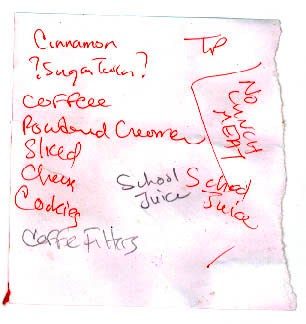 Cinnamon
TP
?Sugar
coffeee
NO LUNCH MEAT
Powdered Creamer
Sliced
Cheese
Cookies
School Juice
School Juice
Coffe Filters